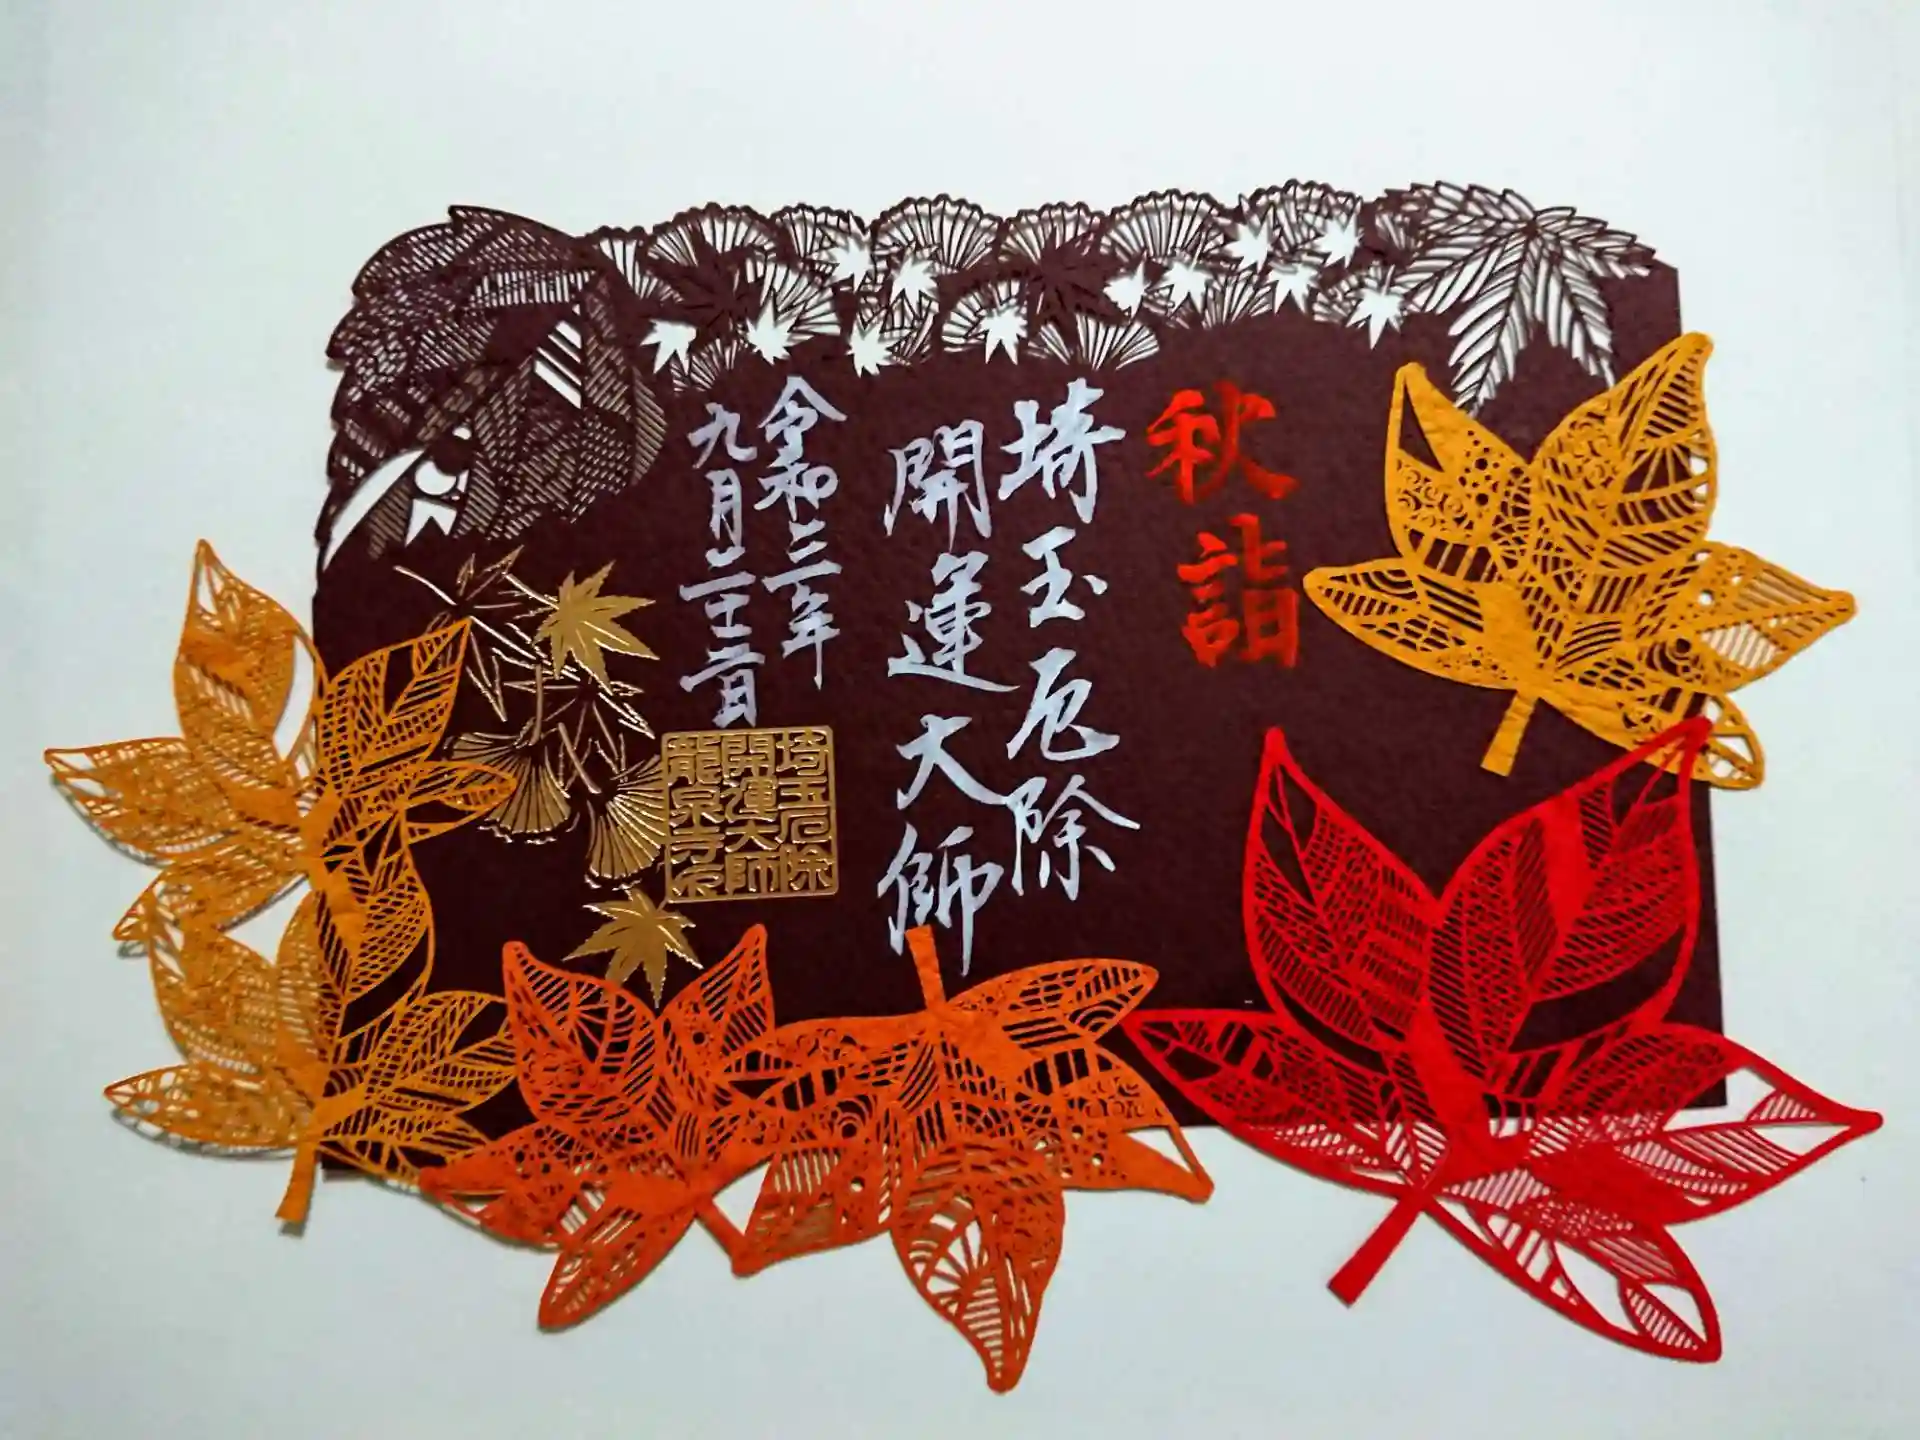 秋詣
埼玉厄除
開運大師
令和三年
九月二十三日
埼玉厄除
開運大師
龍泉寺印